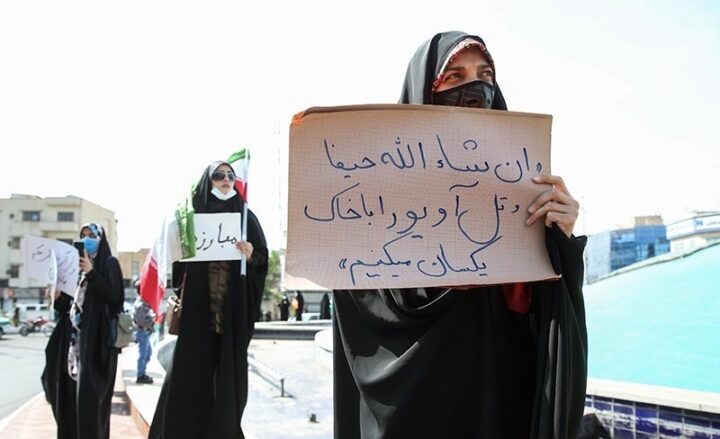 «ان شاء الله حیفا
و تل آویو را با خاک
یکسان میکنیم»
مبارز